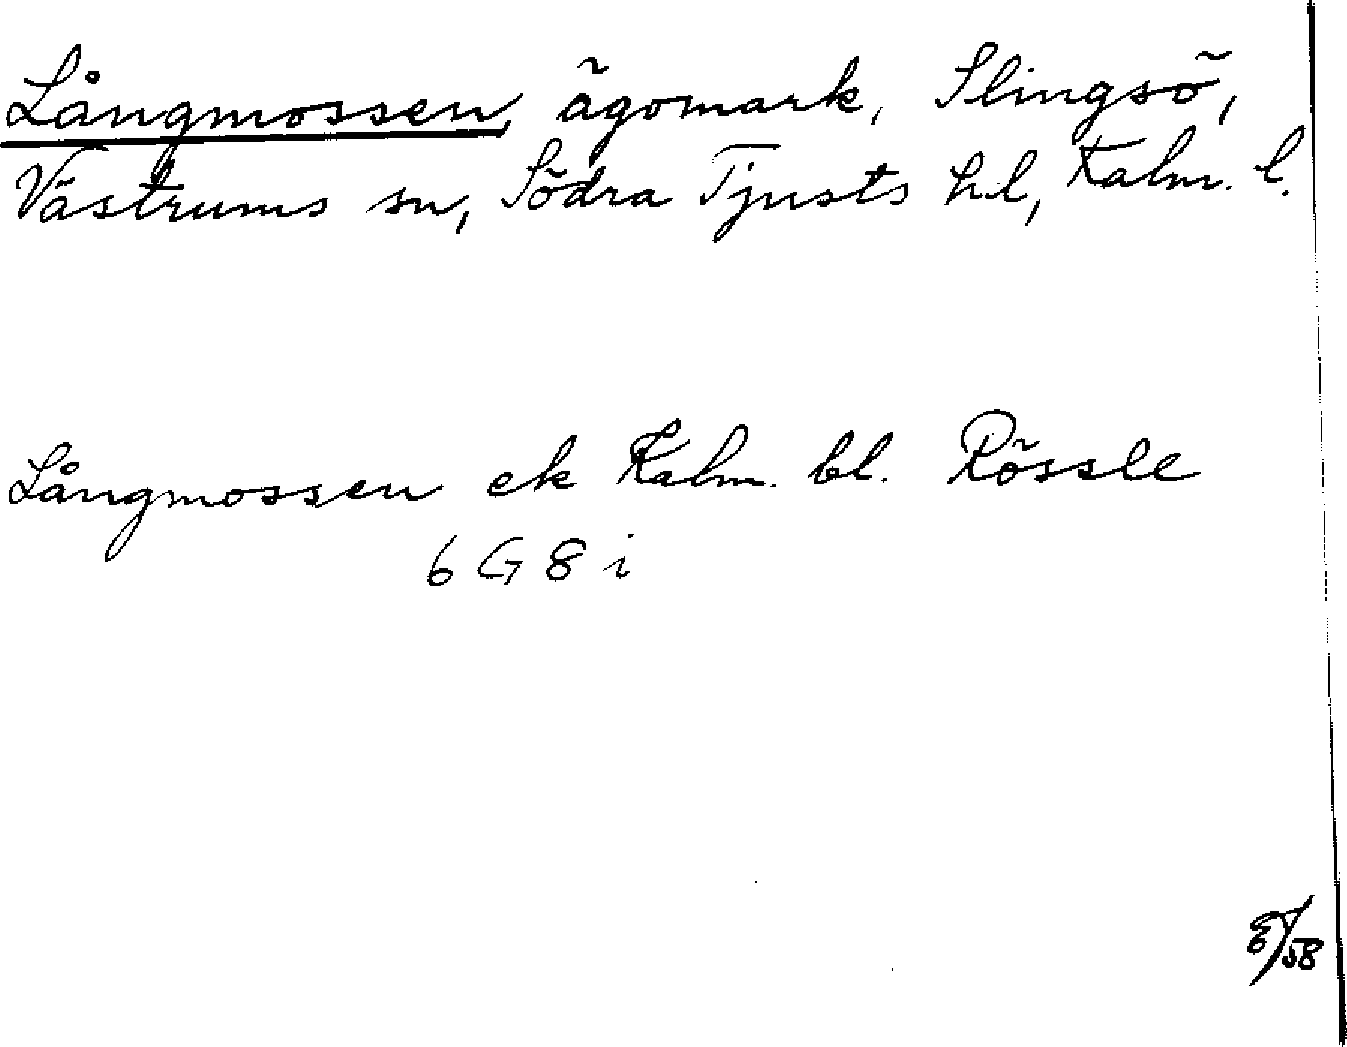 Långmossen, ägomark, Slingsö,
Västrums sn, Södra Tjusts hd, Kalm. l.
Långmossen ek Kalm. bl. Rössle
6 G 8 i